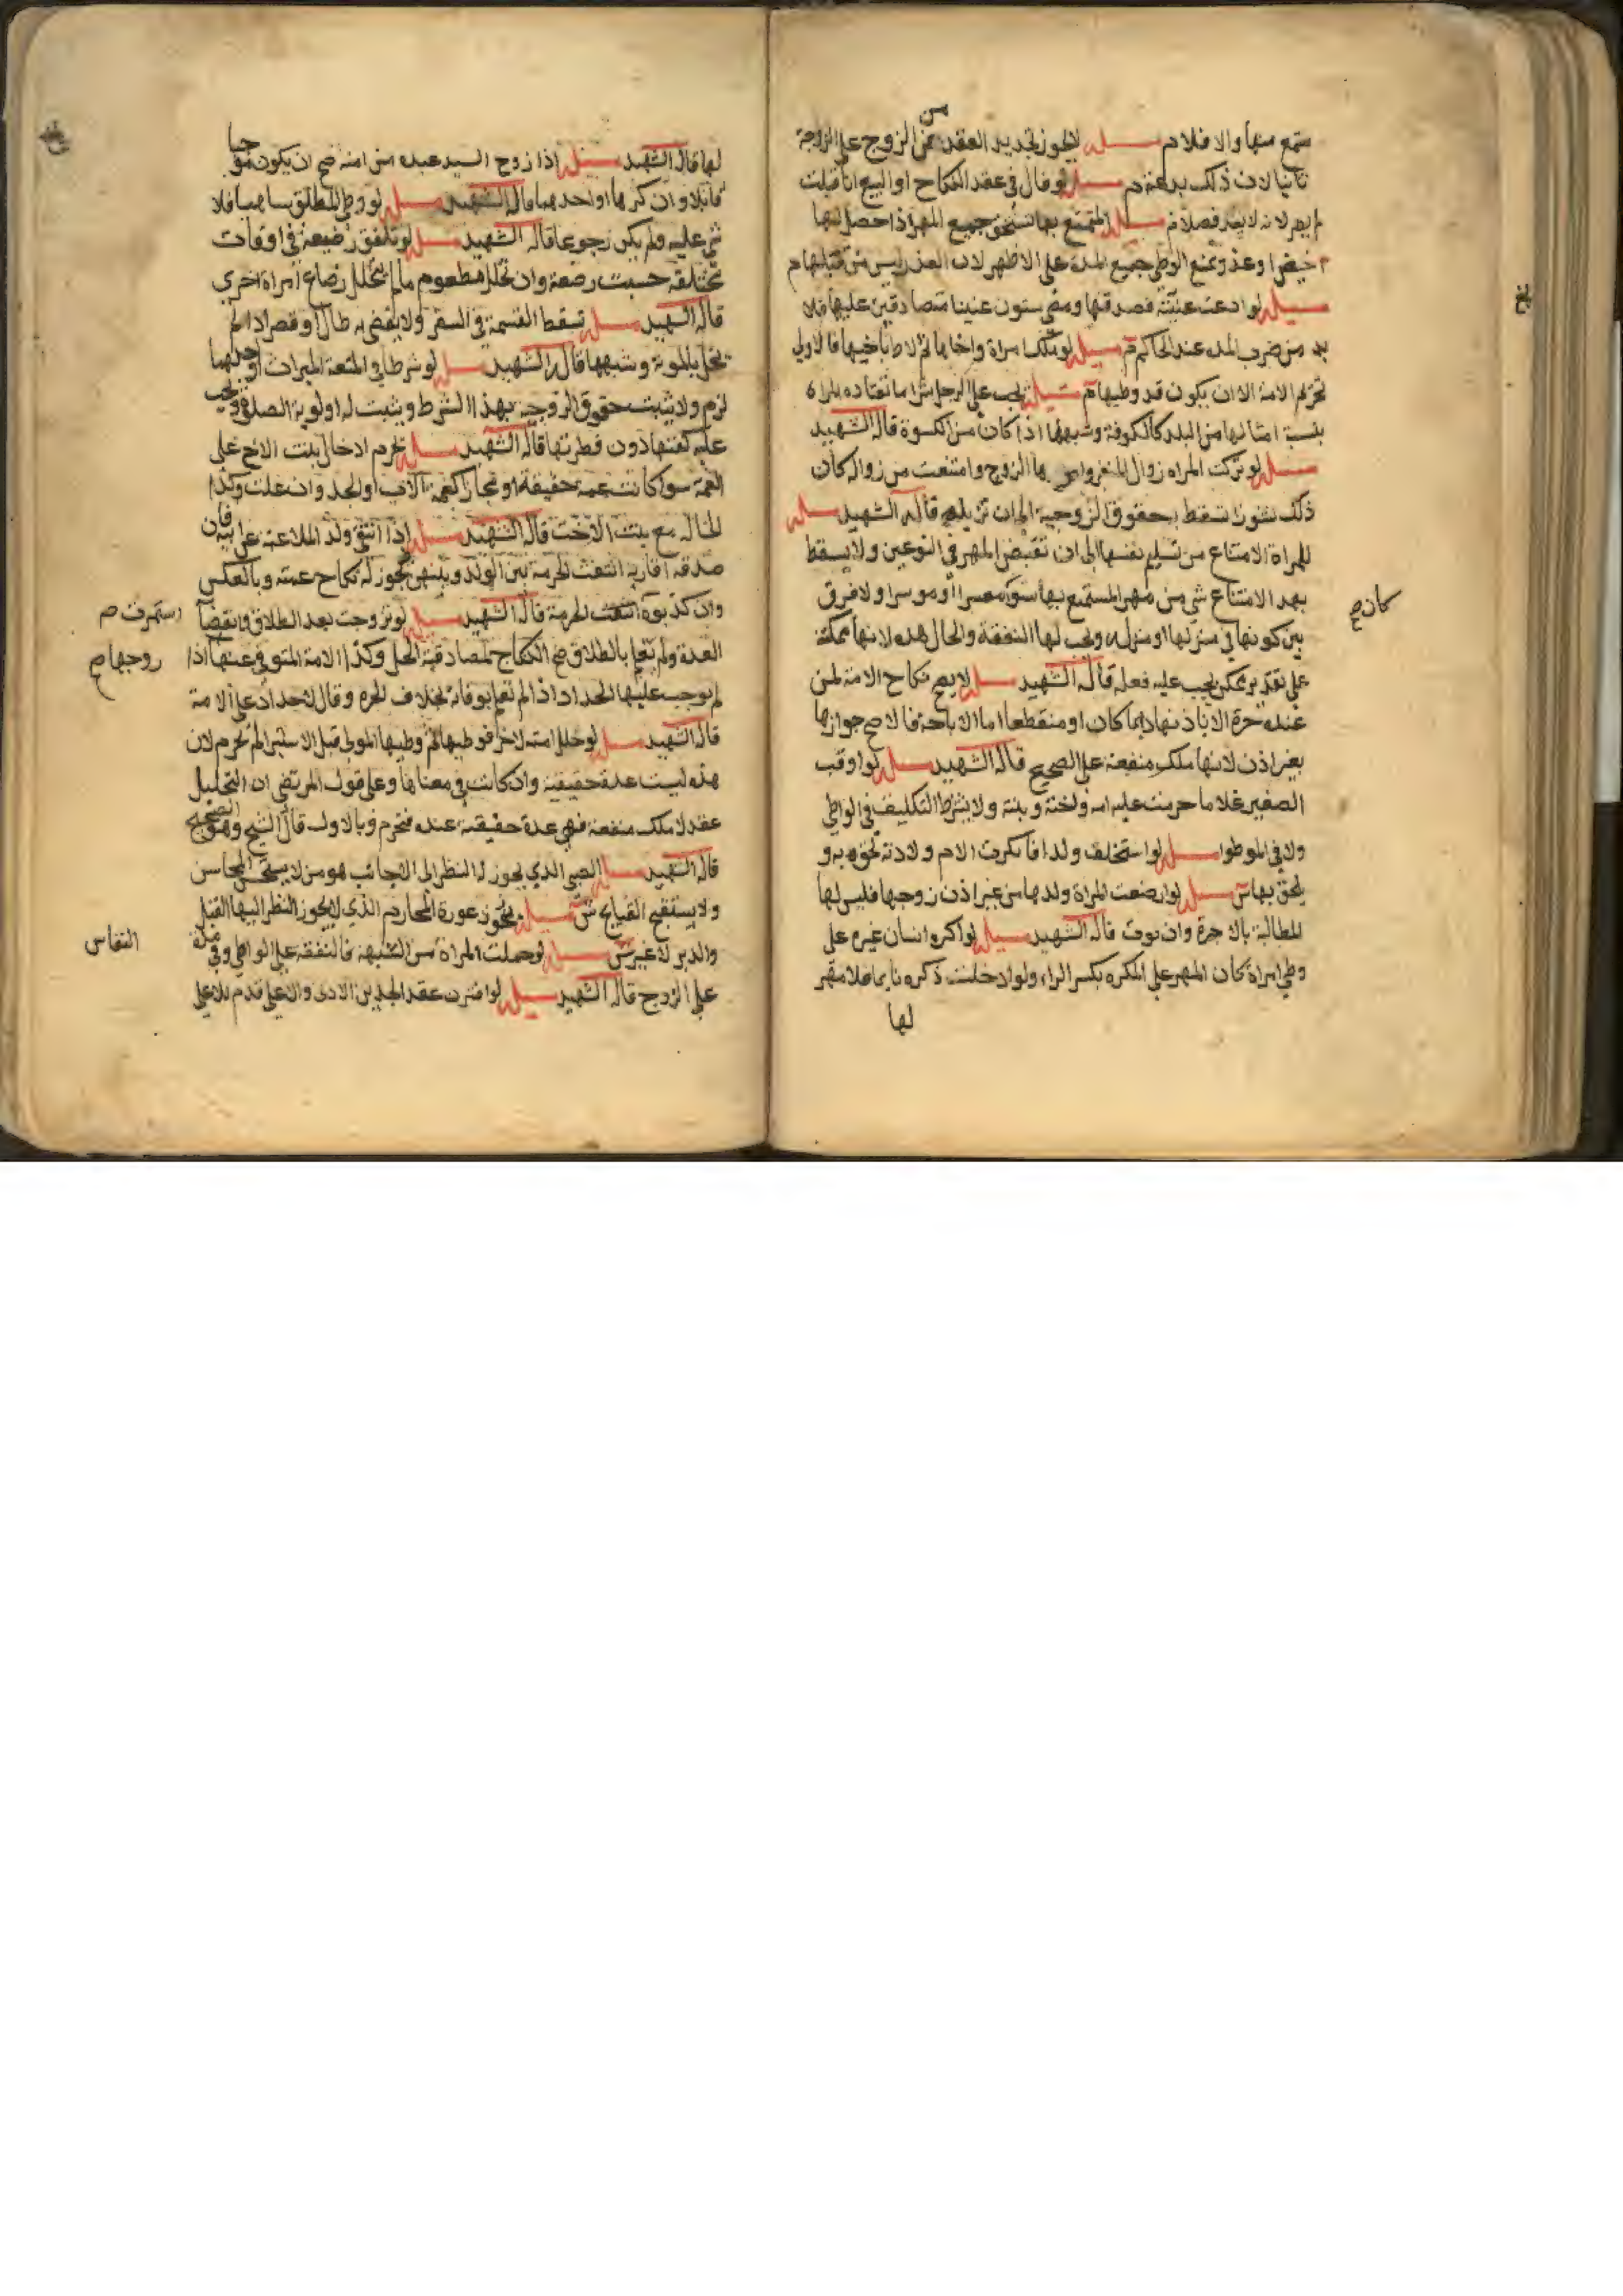 ستمع منها والا فلا م مسئله لا يجوز تجديد العقد من الزوج على الزوجة
ثانيا لان ذلك بدعة م مسئله لو قال في عقد النكاح او البيع انا قبلت
لم يصر لانه لا يعد فصلا م مسئله المتمتع بها تستحق جميع المهر اذا حصل لها
حيض او عذر يمنع الوطي جميع المدة على الاظهر لان العذر ليس من قبلها م
مسئله لو ادعت عننه فصدقها ومضى سنون عنينا متصادقين عليها فلا
بد من ضرب المده عند الحاكم م مسئله لو ملك امراة واخاها ثم لاط باخيها فالاولى
تحريم الامة الا ان يكون قد وطيها م مسئله يجب على الرجل شرا ما تعتاده المراه
بنسبة امثالها من البلد كالكوفية وشبهها اذا كان من الكسوة قاله الشهيد
مسئله لو تركت المراه زوال المنفر وامر بها الزوج وامتنعت من زواله كان
ذلك نشوزا تسقط به حقوق الزوجية الى ان تزيله قاله الشهيد مسئله
للمراة الامتناع من تسليم نفسها الى ان تقبض المهر في النوعين ولا يسقط
بهذا الامتناع شي من مهر المستمتع بها سوا كان معسرا او موسرا ولا فرق
كان صح
بين كونها في منزلها او منزله وتجب لها النفقة والحال هذه لانها ممكنة
على تقدير ممكن يجب عليه فعله قاله الشهيد مسئله لا يصح نكاح الامة لمن
عنده حرة الا باذنها دايما كان او منقطعا اما الاباحة فالاصح جوازها
بغير اذن لانها ملك منفعة على الصحيح قاله الشهيد مسئله لو اوقب
الصغير غلاما حرمت عليه امه واخته وبنته ولا يشترط التكليف في الواطي
ولا في الموطوا مسئله لو استخلف ولدا فانكرت الام ولادته لحق به و
يلحق بها س مسئله لو ارضعت المراة ولدها من غير اذن زوجها فليس لها
المطالبة بالاجرة وان نوت قاله الشهيد مسئله لو اكره انسان غيره على
وطي امراة كان المهر على المكره بكسر الراء ولو ادخلت ذكره نايما فلا مهر
لها
لها قاله الشهيد مسئله اذا زوج السيد عبده من امته صح ان يكون موجبا
قابلا وان كرها او احدهما قاله الشهيد مسئله لو وطي المطلق ساهيا فلا
شي عليه ولم يكن رجوعا قاله الشهيد مسئله لو تلفق رضعة في اوقات
مختلفة حسبت رضعة وان تخلل مطعوم ما لم يتخلل رضاع امراة اخرى
قاله الشهيد مسئله تسقط القسمة في السفر ولا يقضى به طال او قصر اذا لم
يخل بالمونة وشبهها قاله الشهيد مسئله لو شرطا في المتعة الميراث او احدهما
لزم ولا يثبت حقوق الزوجية بهذا الشرط ويثبت له اولوية الصلوة ويجب
عليه كفنها دون فطرتها قاله الشهيد مسئله يحرم ادخال بنت الاخ على
العمة سوا كانت عمة حقيقة او مجازا كعمة الاب او الجد وان علت وكذا
الخاله مع بنت الاخت قاله الشهيد مسئله اذا انتفى ولد الملاعنة عن ابيه فان
صدقه اقاربه انتفت الحرمة بين الولد وبينهم فيجوز له نكاح عمته وبالعكس
وان كذبوه انتفت الحرمة قاله الشهيد مسئله لو تزوجت بعد الطلاق وانقضا
استمرت ص
العدة ولم تعلم بالطلاق صح النكاح لمصادفة المحل وكذا الامة المتوفى عنها اذا
زوجها صح
لم يوجب عليها الحداد اذا لم تعلم بوفاته بخلاف الحره وقال لا حداد على الامة
قاله الشهيد مسئله لو حلل امته لاخر فوطيها ثم وطيها المولى قبل الاستبرا لم تحرم لان
هذه ليست عدة حقيقية وان كانت في معناها وعلى قول المرتضى ان التحليل
عقد لا ملك منفعة فهي عدة حقيقية عنده فتحرم وبالاول قال الشيخ وهو الصحيح
قاله الشهيد مسئله الصبي الذي يجوز له النظر الى الاجانب هو من لا يستحسن المحاسن
ولا يستقبح القبايح ش مسئله عورة المحارم الذي لا يجوز النظر اليها القبل
والدبر لا غير ش مسئله لو حملت المراة من الشبهة فالنفقة على الواطي وفي مدة
النفاس
على الزوج قاله الشهيد مسئله لو اقترن عقد الجدين الادنى والاعلى قدم الاعلى